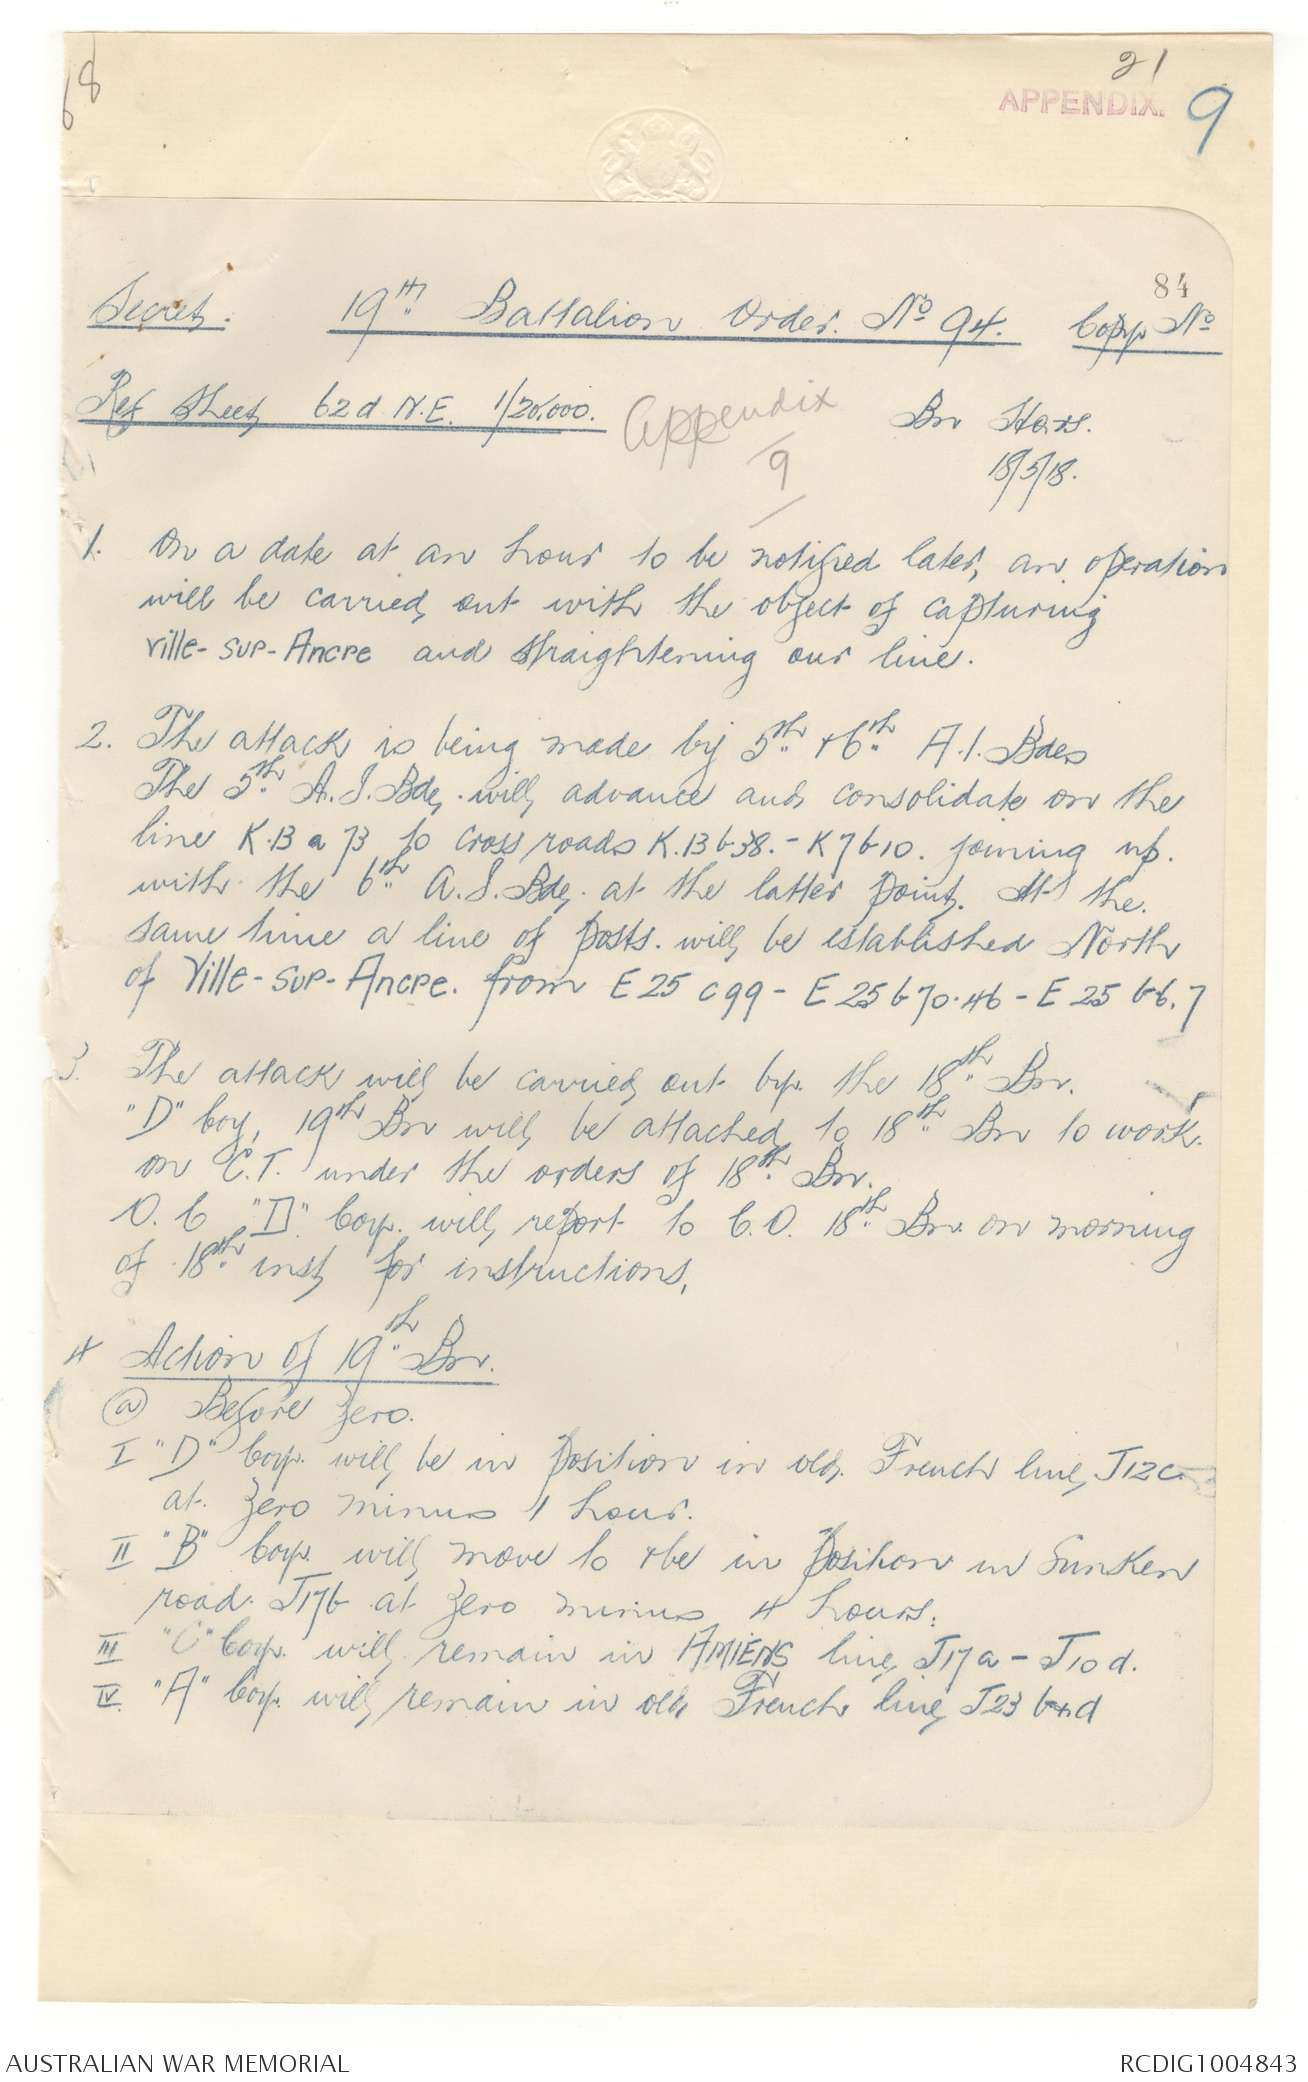 68
21
APPENDIX. 9
84
Secret. 19th Battalion Order. No 94. Copy No
Ref Sheet 62d N.E. 1/20,000.
Appendix
9
Bn Hqrs.
18/5/18.
1. On a date at an hour to be notified later, an operation
will be carried out with the object of capturing
Ville-sur-Ancre and straightening our line.
2. The attack is being made by 5th & 6th A.I. Bdes
The 5th A.I. Bde. will advance and consolidate on the
line K.13 a 73 to cross roads K.13 b 38. - K 7 b 10. joining up.
with the 6th A.I. Bde. at the latter point. At the.
same time a line of posts. will be established North
of Ville-sur-Ancre. from E 25 c 99 - E 25 b 70.46 - E 25 b 6.7
3. The attack will be carried out by. the 18th Bn.
"D" Coy, 19th Bn will be attached to 18th Bn to work.
on C.T. under the orders of 18th Bn.
O.C "D" Coy. will report to C.O. 18th Bn. on morning
of 18th inst for instructions,
4 Action of 19th Bn.
(a) Before Zero.
I "D" Coy. will be in position in old French line J12c.
at. Zero minus 1 hour.
II "B" Coy. will move to & be in position in Sunken
road. J17b at Zero minus 4 hours.
III "C" Coy. will remain in AMIENS line J17a - J10d.
IV. "A" Coy. will remain in old French line J23 b & d
AUSTRALIAN WAR MEMORIAL
RCDIG1004843